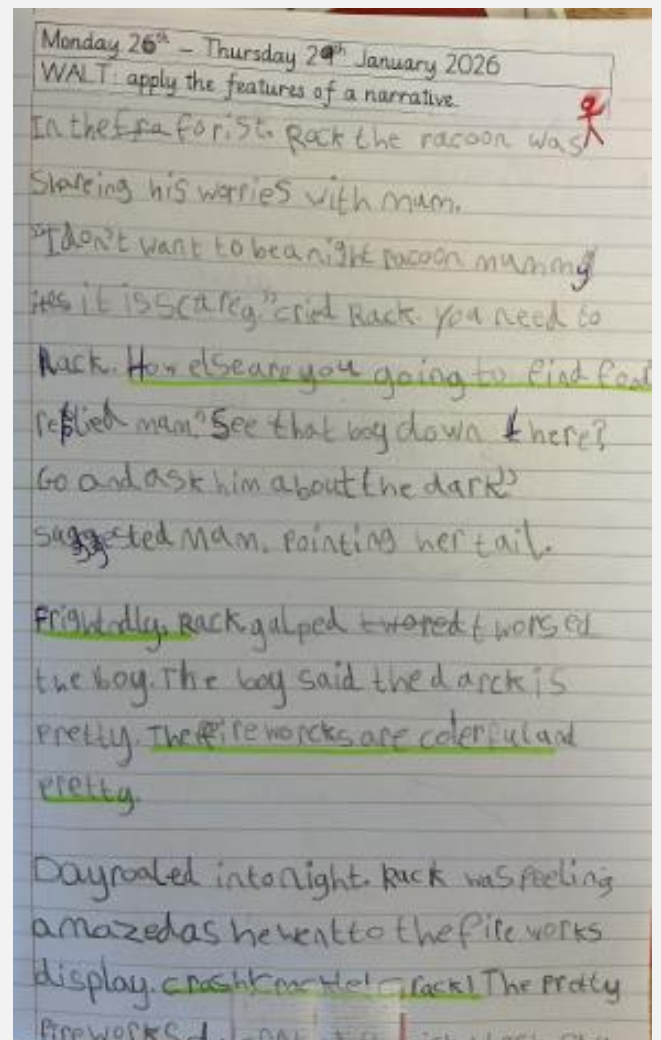 Monday 26th – Thursday 29th January 2026
WALT: apply the features of a narrative.
In the forist. Rock the racoon was
Shareing his worries with mum.
"I don't want to be a night racoon mummy
it is scarey" cried Rack. you need to
Rack. How else are you going to find food
replied mam." See that boy down there?
Go and ask him about the dark"
suggested Mam. Pointing her tail.
Frightndly, Rack galped tworsed
the boy. The boy said the darck is
Pretty. The fire worcks are colerful and
Pretty.
Day roaled into night. Rack was feeling
amazed as he went to the fire works
display. crash! Crack! The Pretty
fireworks